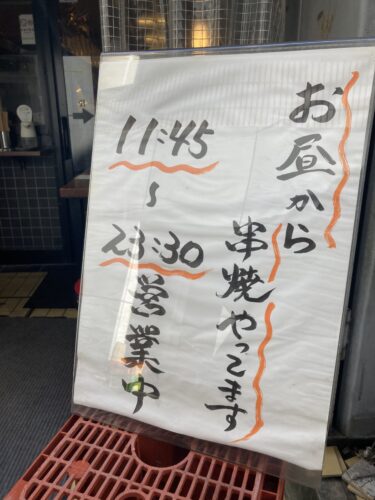 お昼から
串焼やってます
11:45
〜
23:30
営業中